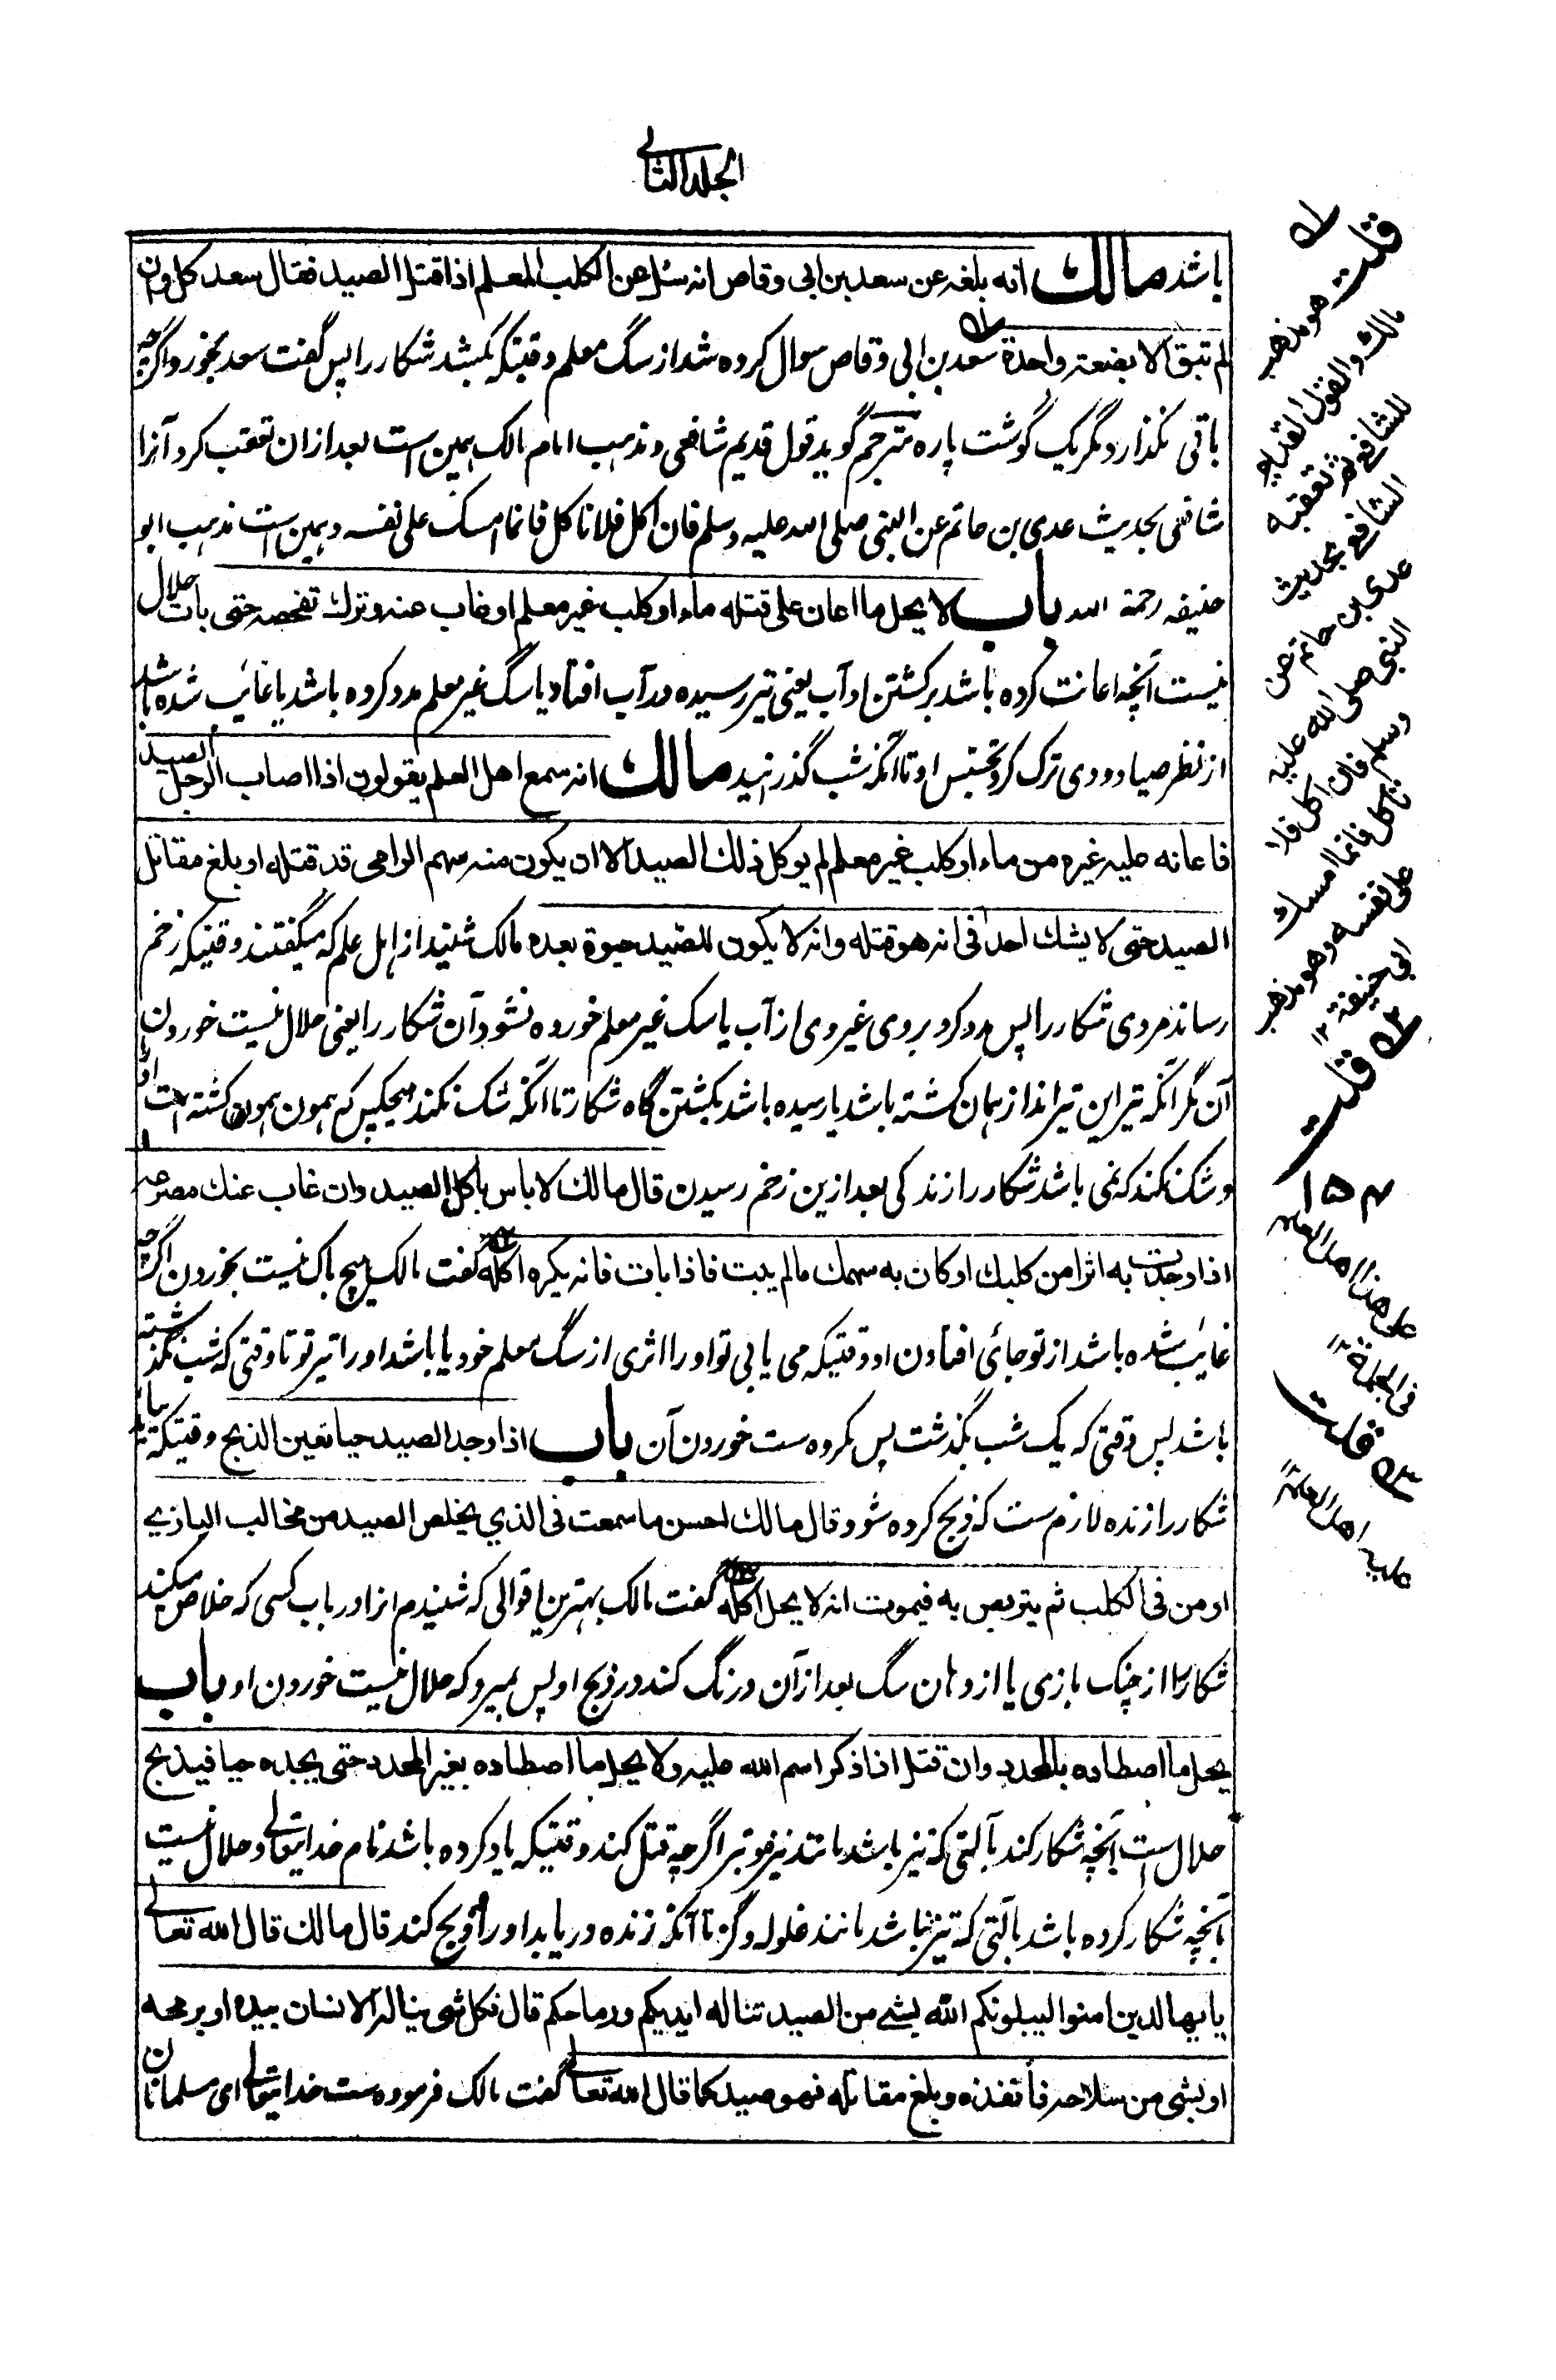 الجلد الثانے
باشد مالك انه بلغه عن سعد بن ابى وقاص انه سئل عن الكلب المعلم اذا قتل الصيد فقال سعد كل وان
لم تبق الا بضعة واحدة سعد بن ابی وقاص سوال کرده شد از سگ معلم وقتیکه بکشد شکار را پس گفت سعد بخور و اگرچه
باقی نگذارد مگر یک گوشت پاره مترجم گوید قول قدیم شافعی و مذہب امام مالک ہمین است بعد ازان تعقب کرد آنرا
شافعی بحدیث عدی بن حاتم عن النبی صلی اللہ علیہ وسلم فان اکل فلا تاکل فانما امسک علی نفسہ و ہمین است مذہب ابو
حنیفہ رحمۃ اللہ باب لا يحل ما اعان على قتله ماء او كلب غير معلم او غاب عنه وترك تفحصه حتى بات حلال
نیست آنچہ اعانت کرده باشد بر کشتن او آب یعنی تیر رسیده در آب افتاد یا سگ غیر معلم مدد کرده باشد یا غائب شده باشد
از نظر صیاد و وی ترک کرد تجسس او تا آنکہ شب گذرانید مالك انه سمع اهل العلم يقولون اذا اصاب الرجل الصيد
فاعانه عليه غيره من ماء او كلب غير معلم لم يوكل ذلك الصيد الا ان يكون منه سهم الرامى قد قتله او بلغ مقاتل
الصيد حتى لا يشك احد فى انه هو قتله وانه لا يكون للصيد حيوة بعده مالک شنید از اہل علم کہ میگفتند وقتیکہ زخم
رساند مردی شکار را پس مدد کرد بروی غیر وی از آب یا سگ غیر معلم خورده نشود آن شکار را یعنی حلال نیست خوردن
آن مگر آنکہ تیر این تیر انداز ہمان کشتہ باشد یا رسیده باشد بکشتن گاه شکار تا آنکہ شک نکند ہیچکس کہ ہمون ہمون کشتہ است او را
و شک نکند کہ نمی باشد شکار را زندگی بعد ازین زخم رسیدن قال مالك لا باس باكل الصيد وان غاب عنك مصرعه
اذا وجدت به اثرا من كلبك او كان به سهمك ما لم يبت فاذا بات فانه يكره اكله گفت مالک ہیچ باک نیست بخوردن اگرچہ
غائب شده باشد از تو جائی افتادن او وقتیکہ می یابی تو او را اثری از سگ معلم خود یا باشد او را تیر تو تا وقتی کہ شب نگذشتہ
باشد پس وقتی کہ یک شب بگذشت پس مکروه ست خوردن آن باب اذا وجد الصيد حيا تعين الذبح وقتیکہ بیابد
شکار را زنده لازم ست کہ ذبح کرده شود قال مالك احسن ما سمعت فى الذي يخلص الصيد من مخالب البازے
او من فى الكلب ثم يتربص به فيموت انه لا يحل اكله گفت مالک بہترین اقوالی کہ شنیدم انرا در باب کسی کہ خلاص میکند
شکار را از چنگ بازی یا از دہان سگ بعد ازآن درنگ کند در ذبح او پس بمیرد کہ حلال نیست خوردن او باب
يحل ما اصطاده بالمحدد وان قتل اذا ذكر اسم الله عليه ولا يحل ما اصطاده بغير المحدد حتى يجده حيا فيذبح
حلال است آنچہ شکار کند بآلتی کہ تیز باشد مانند نیزه و تبر اگرچہ قتل کند وقتیکہ یاد کرده باشد نام خدایتعالی و حلال نیست
آنچہ شکار کرده باشد بآلتی کہ تیز نباشد مانند غلولہ و گز تا آنکہ زنده دریابد او را و ذبح کند قال مالك قال الله تعالے
يا يها الذين امنوا ليبلونكم الله بشے من الصيد تناله ايديكم ورماحكم قال فكل شى يناله الانسان بيده او برمحه
او بشى من سلاحه فانفذه وبلغ مقاتله فهو صيد كما قال الله تعالے گفت مالک فرموده ست خدایتعالی ای مسلمانان
لـه قلت
هو مذهب
مالك والقول القديم
للشافعے ثم تعقبه
الشافعے بحديث
عدى بن حاتم عن
النبى صلى الله عليه
وسلم فان اكل فلا
تاكل فانما امسك
على نفسه وهو مذهب
ابى حنيفة ١٢
٥٢ قلت
١٥٢
على هذا اهل العلم
فى الجملة ١٢
٥٣ قلت
عليه اهل العلم ١٢